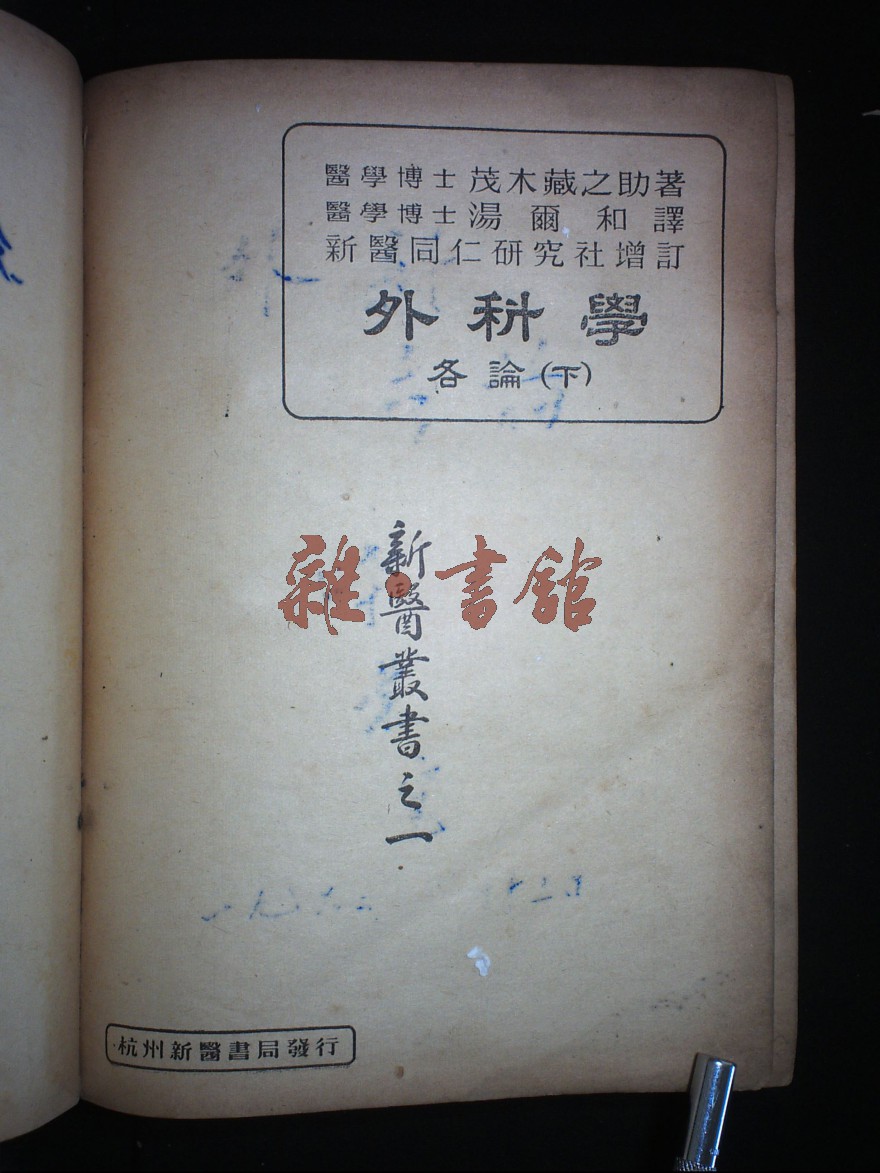 醫學博士 茂木藏之助著
醫學博士 湯爾和譯
新醫同仁研究社增訂
外科學
各論(下)
新醫叢書之一
雜·書館
杭州新醫書局發行